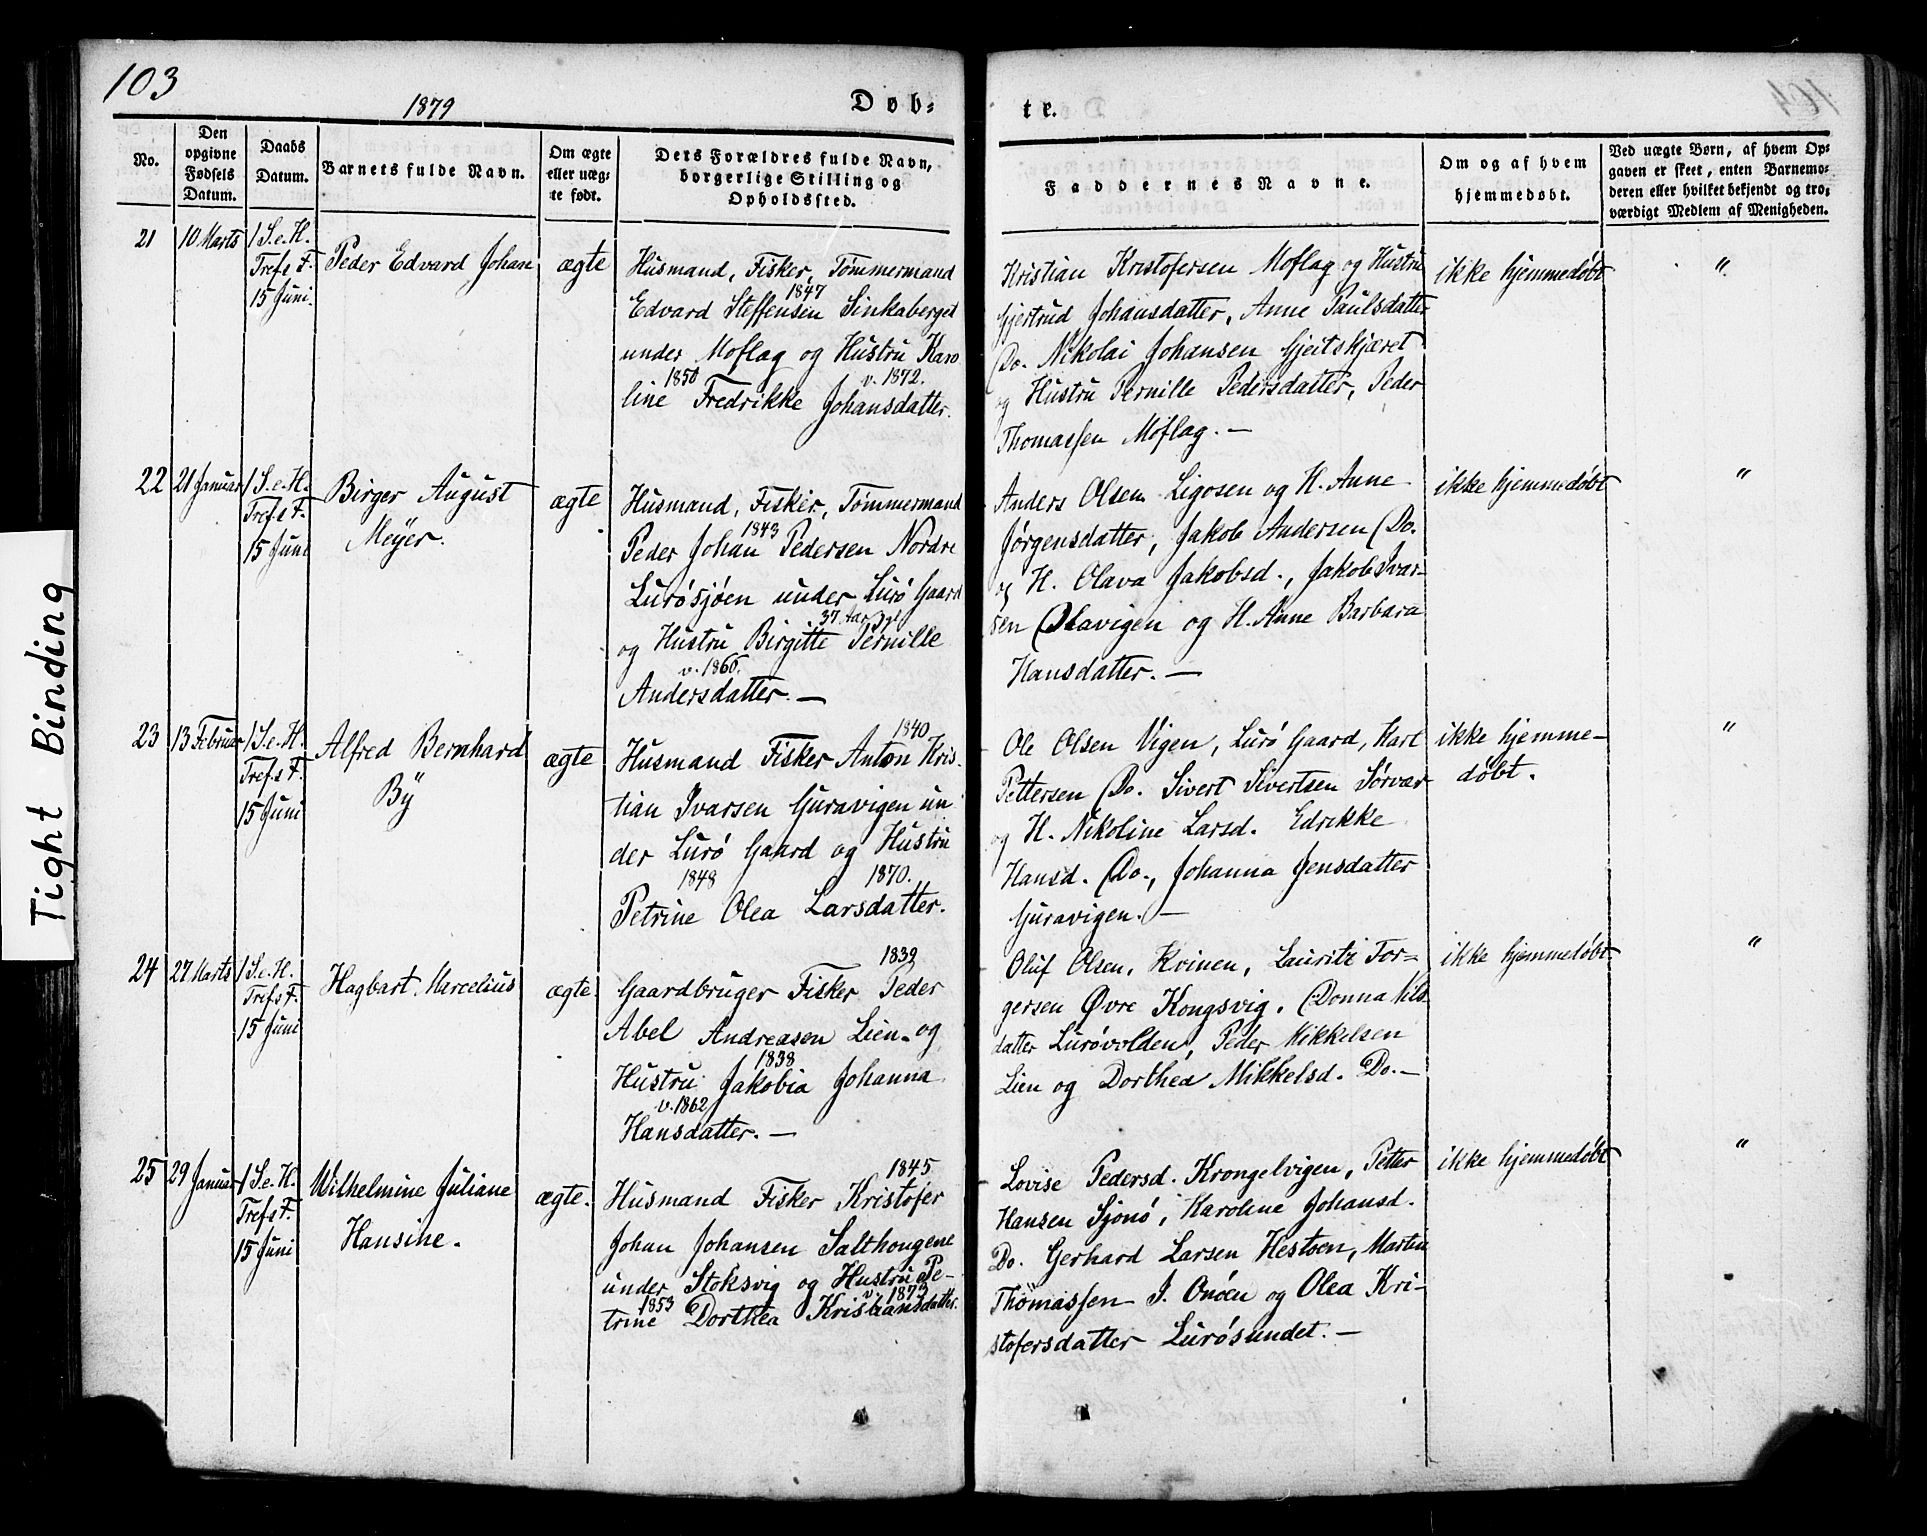 103
1879
Døb-
te.
Tight Binding
No.
Den
opgivne
Fødsels
Datum.
Daabs
Datum.
Barnets fulde Navn.
Om ægte
eller uæg-
te født.
Ders Forældres fulde Navn,
borgerlige Stilling og
Opholdssted.
Faddernes Navne.
Om og af hvem
hjemmedøbt.
Ved uægte Børn, af hvem Op-
gaven er skeet, enten Barnemo-
deren eller hvilket bekjendt og tro-
værdigt Medlem af Menigheden.
21
10 Marts
1 S. e. H.
Tref.s F.
15 Juni.
Peder Edvard Johan
ægte
Husmand, Fisker, Tømmermand
1847
Edvard Steffensen Sinkaberget
under Moflag og Hustru Karo
1850 v. 1872.
line Fredrikke Johansdatter.
Kristian Kristofersen Moflag og Hustru
Gjertrud Johansdatter, Anne Paulsdatter
Do. Nikolai Johansen Gjeitskjæret
og Hustru Pernille Pedersdatter, Peder
Thomassen Moflag. —
ikke hjemmedøbt
"
22
21 Januar
1 S. e. H.
Tref.s F.
15 Juni
Birger August
Meÿer.
ægte
Husmand, Fisker, Tømmermand
1843
Peder Johan Pedersen Nordre
Lurøsjøen under Lurø Gaard
37 Aar gl
og Hustru Birgitte Pernille
v. 1866.
Andersdatter. —
Anders Olsen Ligosen og H. Anne
Jørgensdatter, Jakob Andersen Do.
og H. Olava Jakobsd., Jakob Ivar-
sen Olavigen og H. Anne Barbara
Hansdatter. —
ikke hjemmedøbt
"
23
13 Februar
1 S. e. H.
Tref.s F.
15 Juni
Alfred Bernhard
Bÿ
ægte
1840
Husmand Fisker Anton Kris-
tian Ivarsen Guravigen un
der Lurø Gaard og Hustru
1848 1870.
Petrine Olea Larsdatter.
Ole Olsen Vigen, Lurø Gaard, Karl
Pettersen Do. Sivert Sivertsen Sørvær
og H. Nikoline Larsd. Edrikke
Hansd. Do., Johanna Jensdatter
Guravigen. —
ikke hjemme-
døbt.
"
24
27 Marts
1 S. e. H.
Tref.s F.
15 Juni
Hagbart Marcelius
ægte.
1839
Gaardbruger Fisker Peder
Abel Andreasen Lien og
1838
Hustru Jakobia Johanna
v. 1862
Hansdatter. —
Oluf Olsen, Kvinen, Lauritz Tor-
gersen Øvre Kongsvig. Donna Nils
datter Lurøvolden, Peder Mikkelsen
Lien og Dorthea Mikkelsd. Do. —
ikke hjemmedøbt
"
25
29 Januar
1 S. e. H.
Tref.s F.
15 Juni
Wilhelmine Juliane
Hansine.
ægte.
1845
Husmand Fisker Kristofer
Johan Johansen Salthougene
under Stoksvig og Hustru Pe-
1853 v. 1873
trine Dorthea Kristiansdatter.
Lovise Pedersd. Krongelvigen, Petter
Hansen Sjonø, Karoline Johansd.
Do. Gerhard Larsen Hestøen, Martin
Thomassen I. Onøen og Olea Kri-
stofersdatter Lurøsundet. —
ikke hjemmedøbt
"